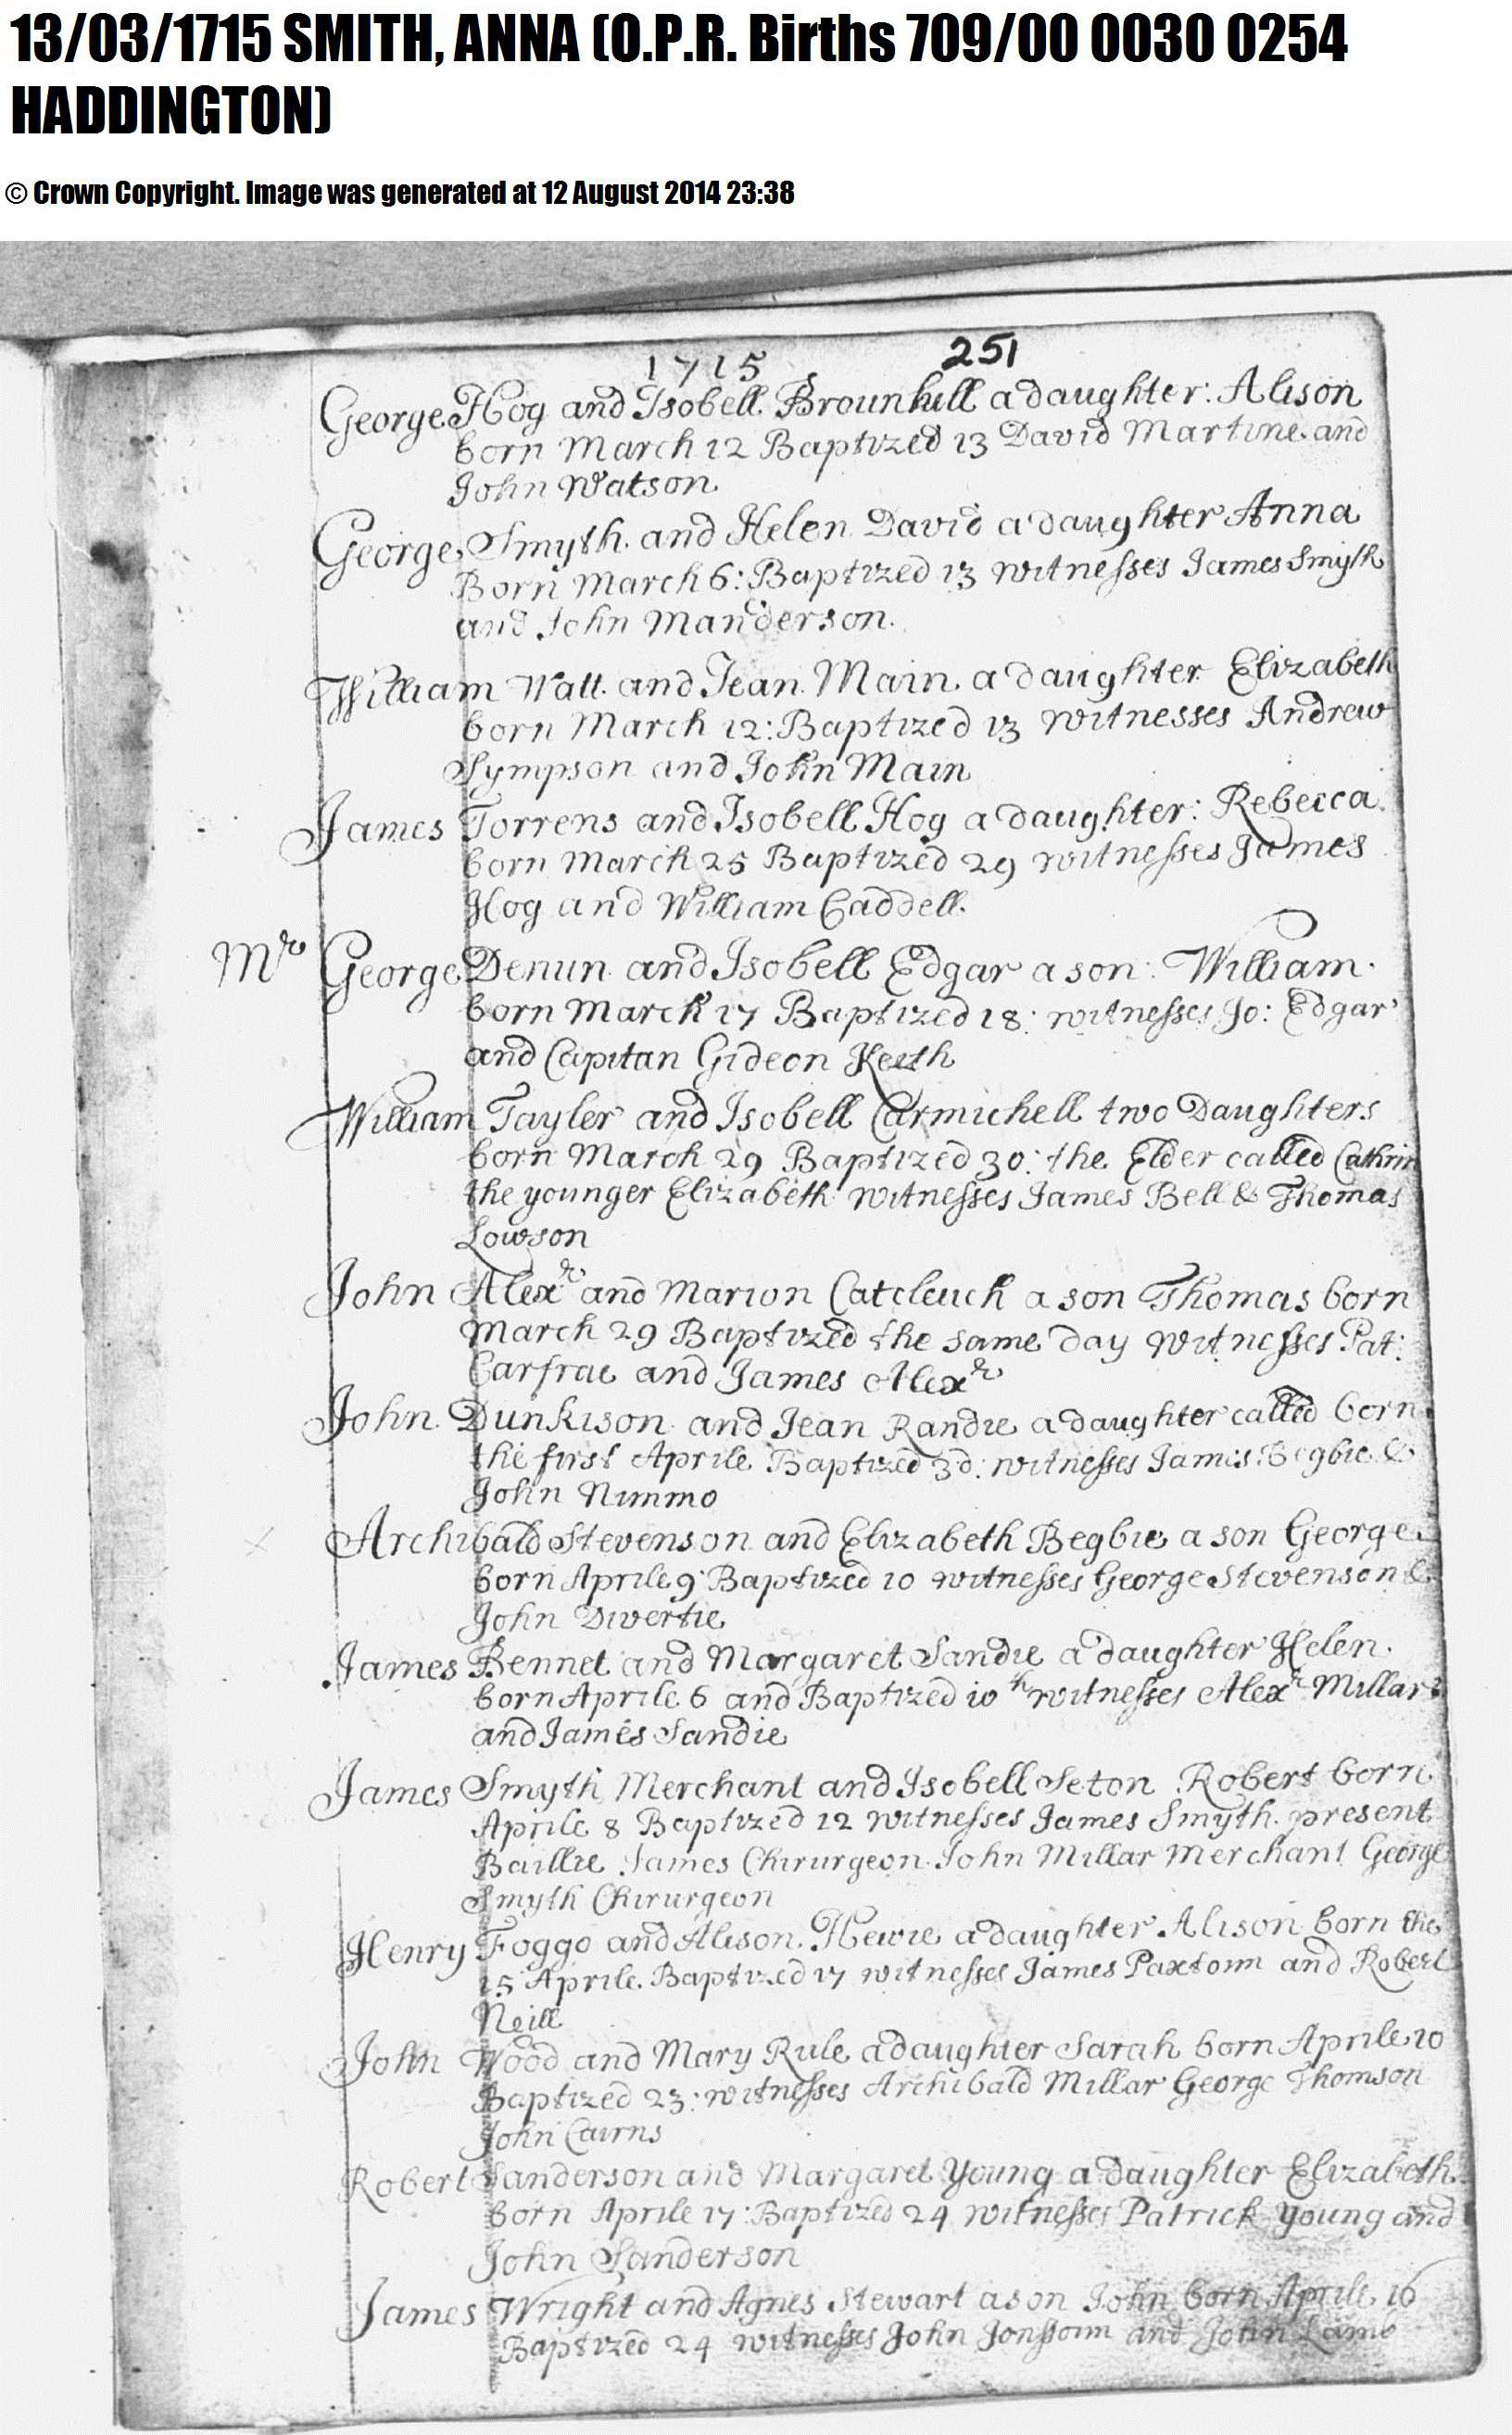 13/03/1715 SMITH, ANNA (O.P.R. Births 709/00 0030 0254
HADDINGTON)
© Crown Copyright. Image was generated at 12 August 2014 23:38
1715 251
George Hog and Isobell Brounhill a daughter: Alison
born March 12 Baptized 13 David Martine and
John Watson
George Smyth and Helen David a daughter Anna
Born March 6: Baptized 13 witnesses James Smyth
and John Manderson.
William Watt and Jean Main a daughter Elizabeth
born March 12: Baptized 13 witnesses Andrew
Sympson and John Main
James Torrens and Isobell Hog a daughter: Rebecca
born March 25 Baptized 29 witnesses James
Hog and William Caddell.
Mr George Denun and Isobell Edgar a son: William
born March 17 Baptized 18: witnesses Jo: Edgar
and Capitan Gideon Keith
William Tayler and Isobell Carmichell two Daughters
born March 29 Baptized 30: the Elder called Cathrin
the younger Elizabeth witnesses James Bell & Thomas
Lowson
John Alexr and Marion Catcleuch a son Thomas born
March 29 Baptized the same day witnesses Pat:
Carfrae and James Alexr
John Dunkison and Jean Randie a daughter called born
the first Aprile Baptized 3d: witnesses James Begbie &
John Nimmo
Archibald Stevenson and Elizabeth Begbie a son George
born Aprile 9 Baptized 10 witnesses George Stevenson &
John Divertie
James Bennet and Margaret Sandie a daughter Helen
born Aprile 6 and Baptized 10th witnesses Alexr Millar
and James Sandie
James Smyth Merchant and Isobell Seton Robert born
Aprile 8 Baptized 12 witnesses James Smyth present
Baillie James Chirurgeon John Millar Merchant George
Smyth Chirurgeon
Henry Foggo and Alison Hewie a daughter Alison born the
15 Aprile Baptized 17 witnesses James Paxtoun and Robert
Neill
John Wood and Mary Rule a daughter Sarah born Aprile 20
Baptized 23: witnesses Archibald Millar George Thomson
John Cairns
Robert Sanderson and Margaret Young a daughter Elizabeth
born Aprile 17: Baptized 24 witnesses Patrick Young and
John Sanderson
James Wright and Agnes Stewart a son John born Aprile 16
Baptized 24 witnesses John Jonssoun and John Lamb